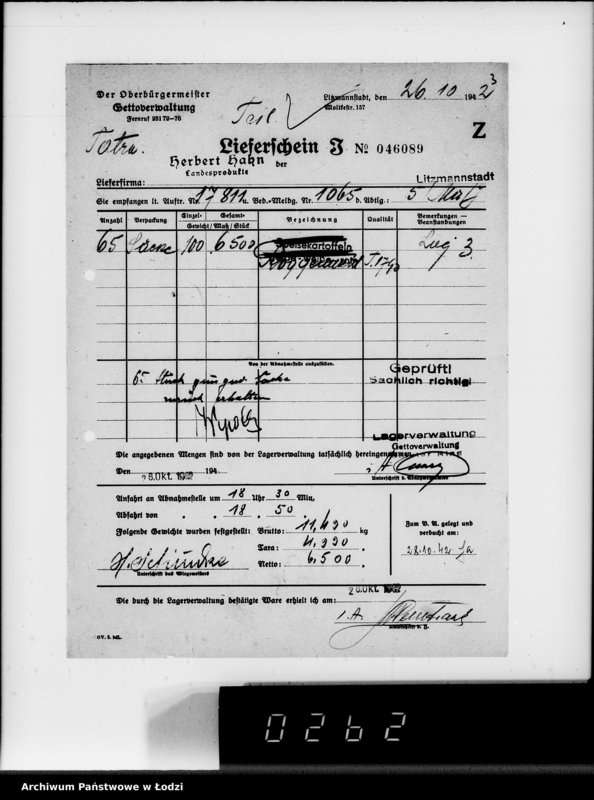 3
Der Oberbürgermeister
Gettoverwaltung
Fernruf 25172-76
Litzmannstadt, den 26. 10. 1942
Moltkestr. 157
Z
Lieferschein J № 046089
Herbert Hahn der
Landesprodukte
Litzmannstadt
Lieferfirma:
Sie empfangen lt. Auftr. Nr. 17811 u. Bed.-Meldg. Nr. 1065 d. Abtlg.: 5
Anzahl Verpackung Einzel- Gesamt- Bezeichnung Qualität Bemerkungen —
Gewicht/Maß/Stück Beanstandungen
65 Säcke 100 6500 Speisekartoffeln
Roggenmehl T. 1790 Lag 3.
Von der Abnahmestelle auszufüllen.
65 Stück Säcke
zurück erhalten
Geprüft!
Sachlich richtig!
Lagerverwaltung
Gettoverwaltung
Die angegebenen Mengen sind von der Lagerverwaltung tatsächlich hereingenommen
Den 26. OKT. 1942 194
Unterschrift d.
Anfahrt an Abnahmestelle um 18 Uhr 30 Min.
Abfahrt von „ „ 18 „ 50 „
Folgende Gewichte wurden festgestellt: Brutto: 11,490 kg
Tara: 4,990 „
Netto: 6,500 „
Unterschrift des Wiegemeisters
Zum B. A. gelegt und
verbucht am:
28.10.42
26. OKT. 1942
Die durch die Lagerverwaltung bestätigte Ware erhielt ich am:
i. A.
GV. 5. ML.
0262
Archiwum Państwowe w Łodzi